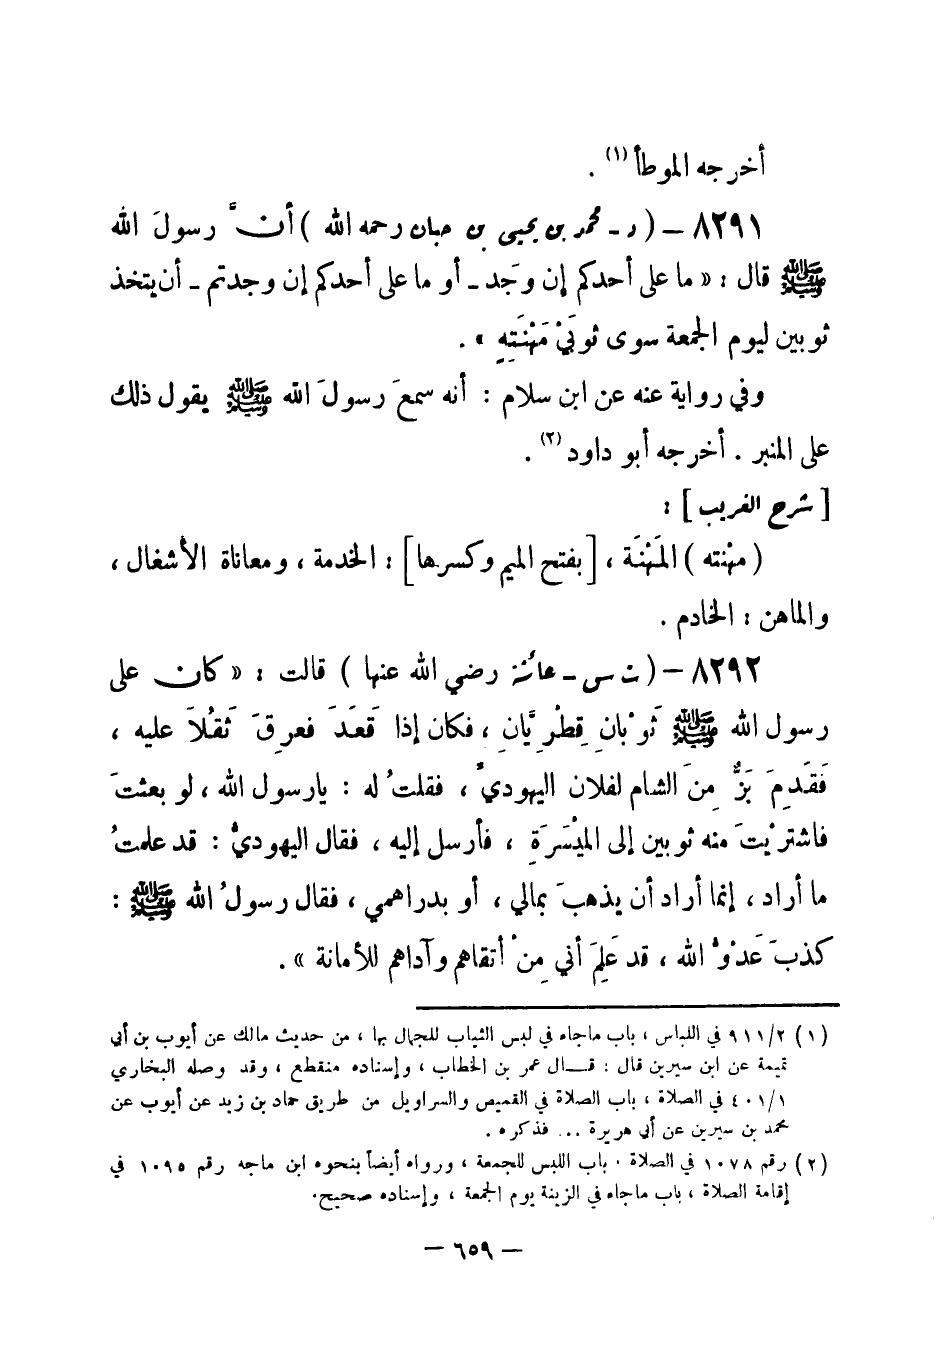 أخرجه الموطأ (١) .
٨٢٩١ – ( د – محمد بن يحيى بن حبان رحمه الله ) أنَّ رسولَ الله
ﷺ قال : « ما على أحدكم إن وَجَد – أو ما على أحدكم إن وجدتم – أن يتخذ
ثوبين ليوم الجمعة سوى ثوبَيْ مَِهْنَتِهِ » .
وفي رواية عنه عن ابن سلام : أنه سمعَ رسولَ الله ﷺ يقول ذلك
على المنبر . أخرجه أبو داود (٢) .
[ شرح الغريب ] :
( مهْنته ) المَهْنَة ، [ بفتح الميم وكسرها ] : الخدمة ، ومعاناة الأشغال ،
والماهن : الخادم .
٨٢٩٢ – ( ت س – عائشة رضي الله عنها ) قالت : « كان على
رسول الله ﷺ ثَوْبانِ قِطْرِيَّانِ ، فكان إذا قَعَدَ فعرِقَ ثَقُلَا عليه ،
فَقَدِمَ بَزٌّ مِنَ الشام لفلان اليهوديِّ ، فقلتُ له : يا رسول الله ، لو بعثتَ
فاشتريْتَ منه ثوبين إلى الميْسَرَةِ ، فأرسل إليه ، فقال اليهوديُّ : قد علمتُ
ما أراد ، إنما أراد أن يذهبَ بمالي ، أو بدراهمي ، فقال رسولُ الله ﷺ :
كذبَ عَدُوُّ الله ، قد عَلِمَ أني مِنْ أتقاهم وآداهم للأمانة » .
(١) ٩١١/٢ في اللباس ، باب ماجاء في لبس الثياب للجمال بها ، من حديث مالك عن أيوب بن أبي
تميمة عن ابن سيرين قال : قال عمر بن الخطاب ، وإسناده منقطع ، وقد وصله البخاري
٤٠١/١ في الصلاة ، باب الصلاة في القميص والسراويل من طريق حماد بن زيد عن أيوب عن
محمد بن سيرين عن أبي هريرة ... فذكره .
(٢) رقم ١٠٧٨ في الصلاة ، باب اللبس للجمعة ، ورواه أيضاً بنحوه ابن ماجه رقم ١٠٩٥ في
إقامة الصلاة ، باب ماجاء في الزينة يوم الجمعة ، وإسناده صحيح .
– ٦٥٩ –